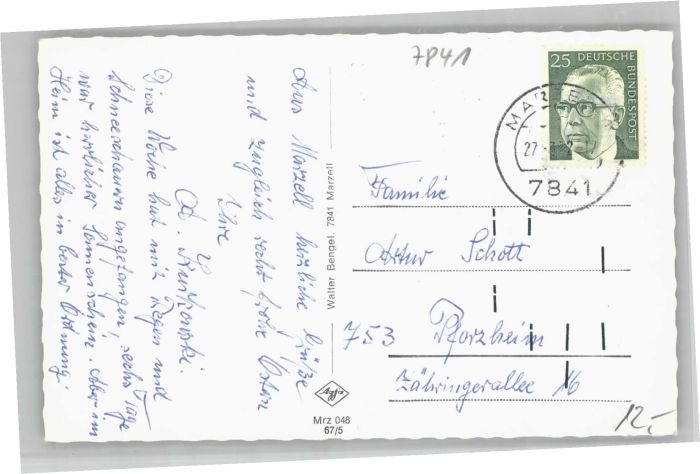 7841
25
DEUTSCHE
BUNDESPOST
MARZELL
27.-3.
7841
Aus Marzell herzliche Grüße
und zugleich recht frohe Ostern
Ihre
Diese Woche hat mit Regen und
Schneeschauern angefangen, sechs Tage
war herrlicher Sonnenschein. Aber im
Heim ist alles in bester Ordnung.
Walter Bengel, 7841 Marzell
Agfa
Mrz 048
67/5
Familie
Artur Schott
753 Pforzheim
Zähringerallee 16
12,-